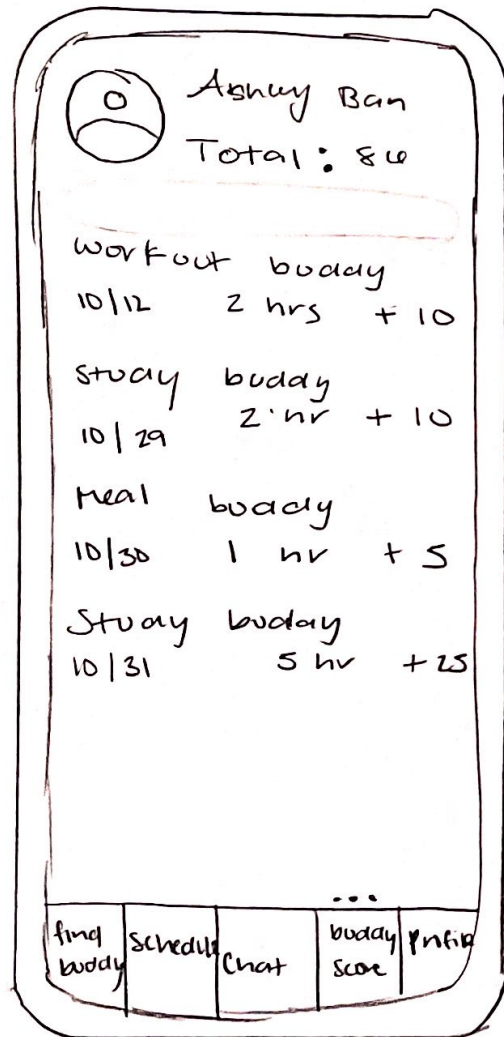 Ashley Ban
Total: 86
workout buddy
10/12 2 hrs + 10
study buddy
10/29 2 hr + 10
Meal buddy
10/30 1 hr + 5
Study buddy
10/31 5 hr + 25
...
find buddy
schedule
Chat
buddy score
Profile